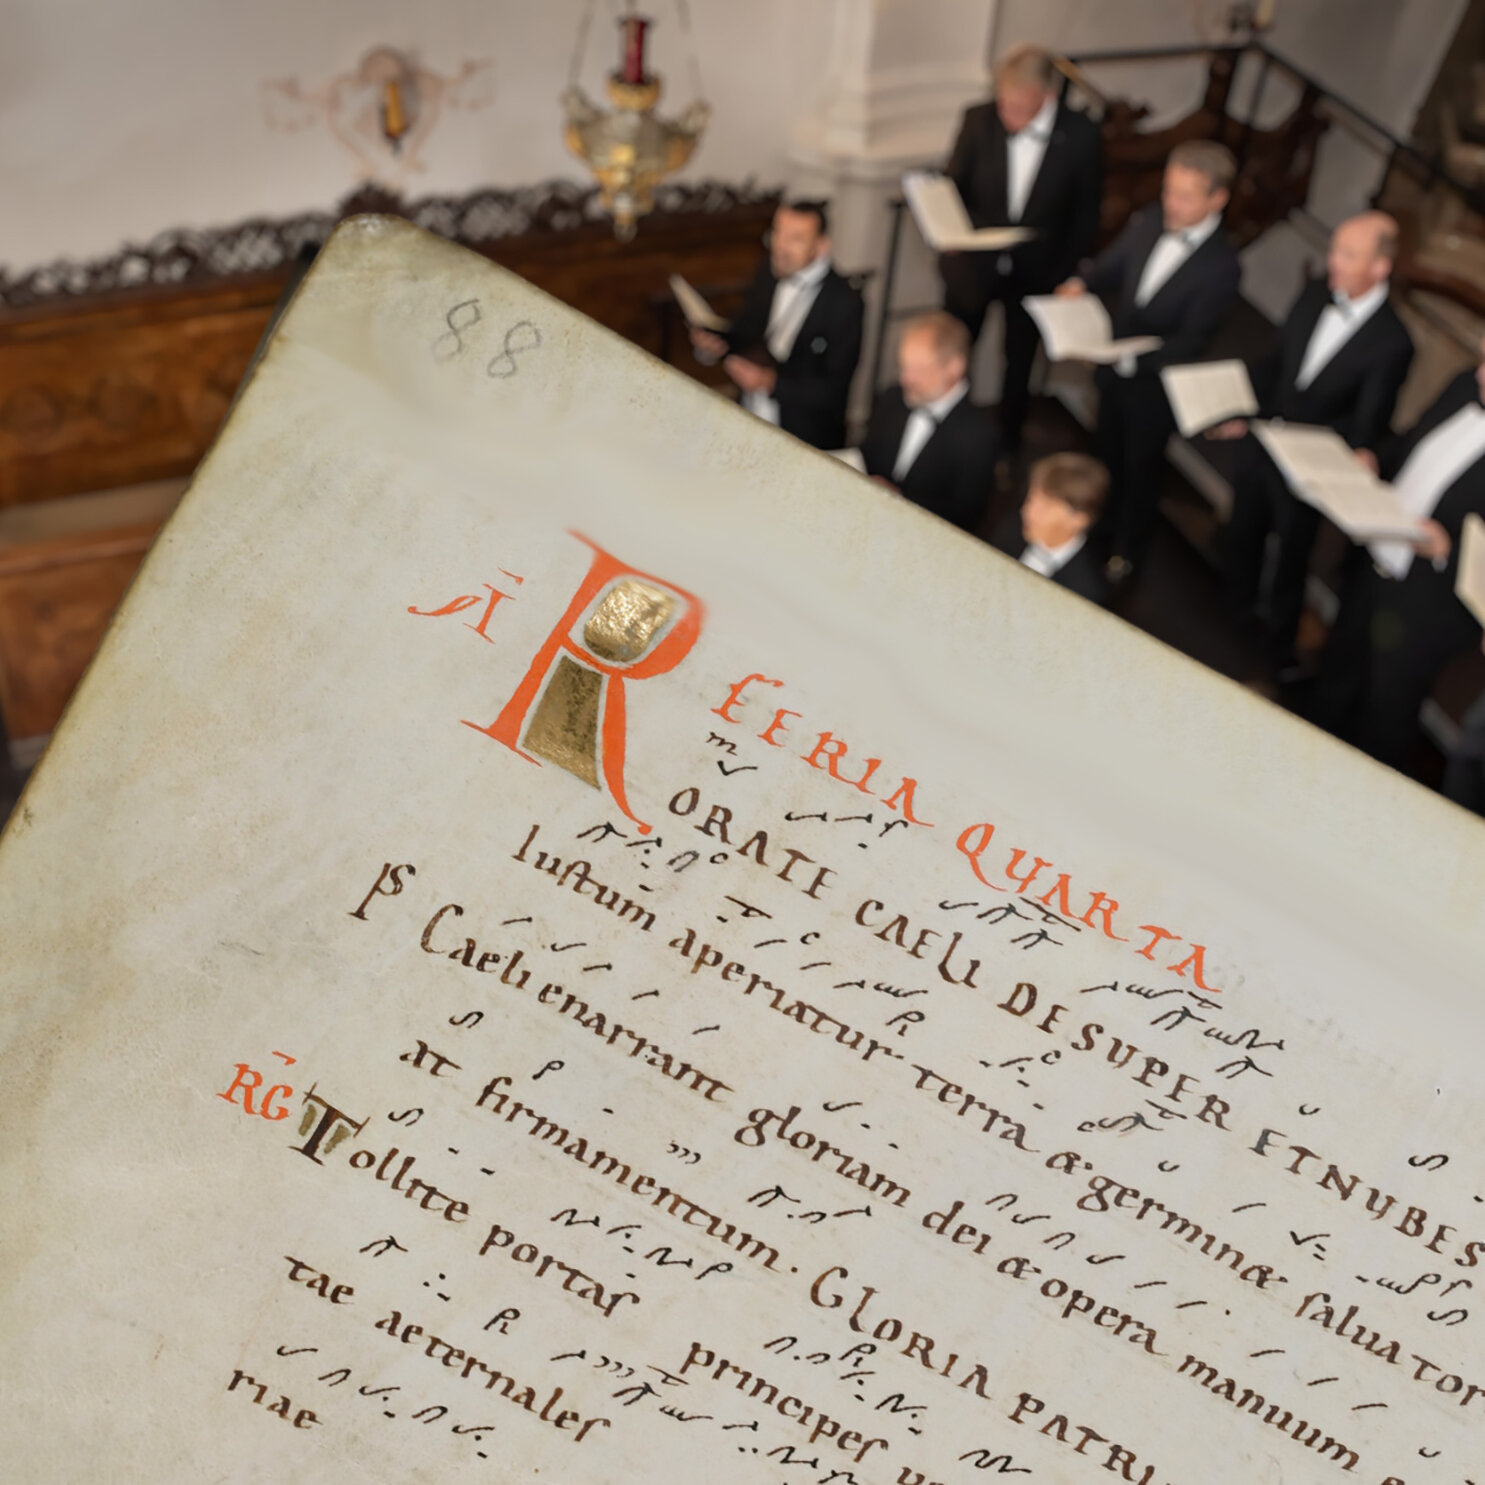 88
FERIA QUARTA
RORATE CAELI DESUPER ET NUBES
Iustum aperiatur terra & germin& saluator
Ps Caeli enarrant gloriam dei & opera manuum
at firmamentum. GLORIA PATRI
RG Tollite portas principes
tae aeternales
riae